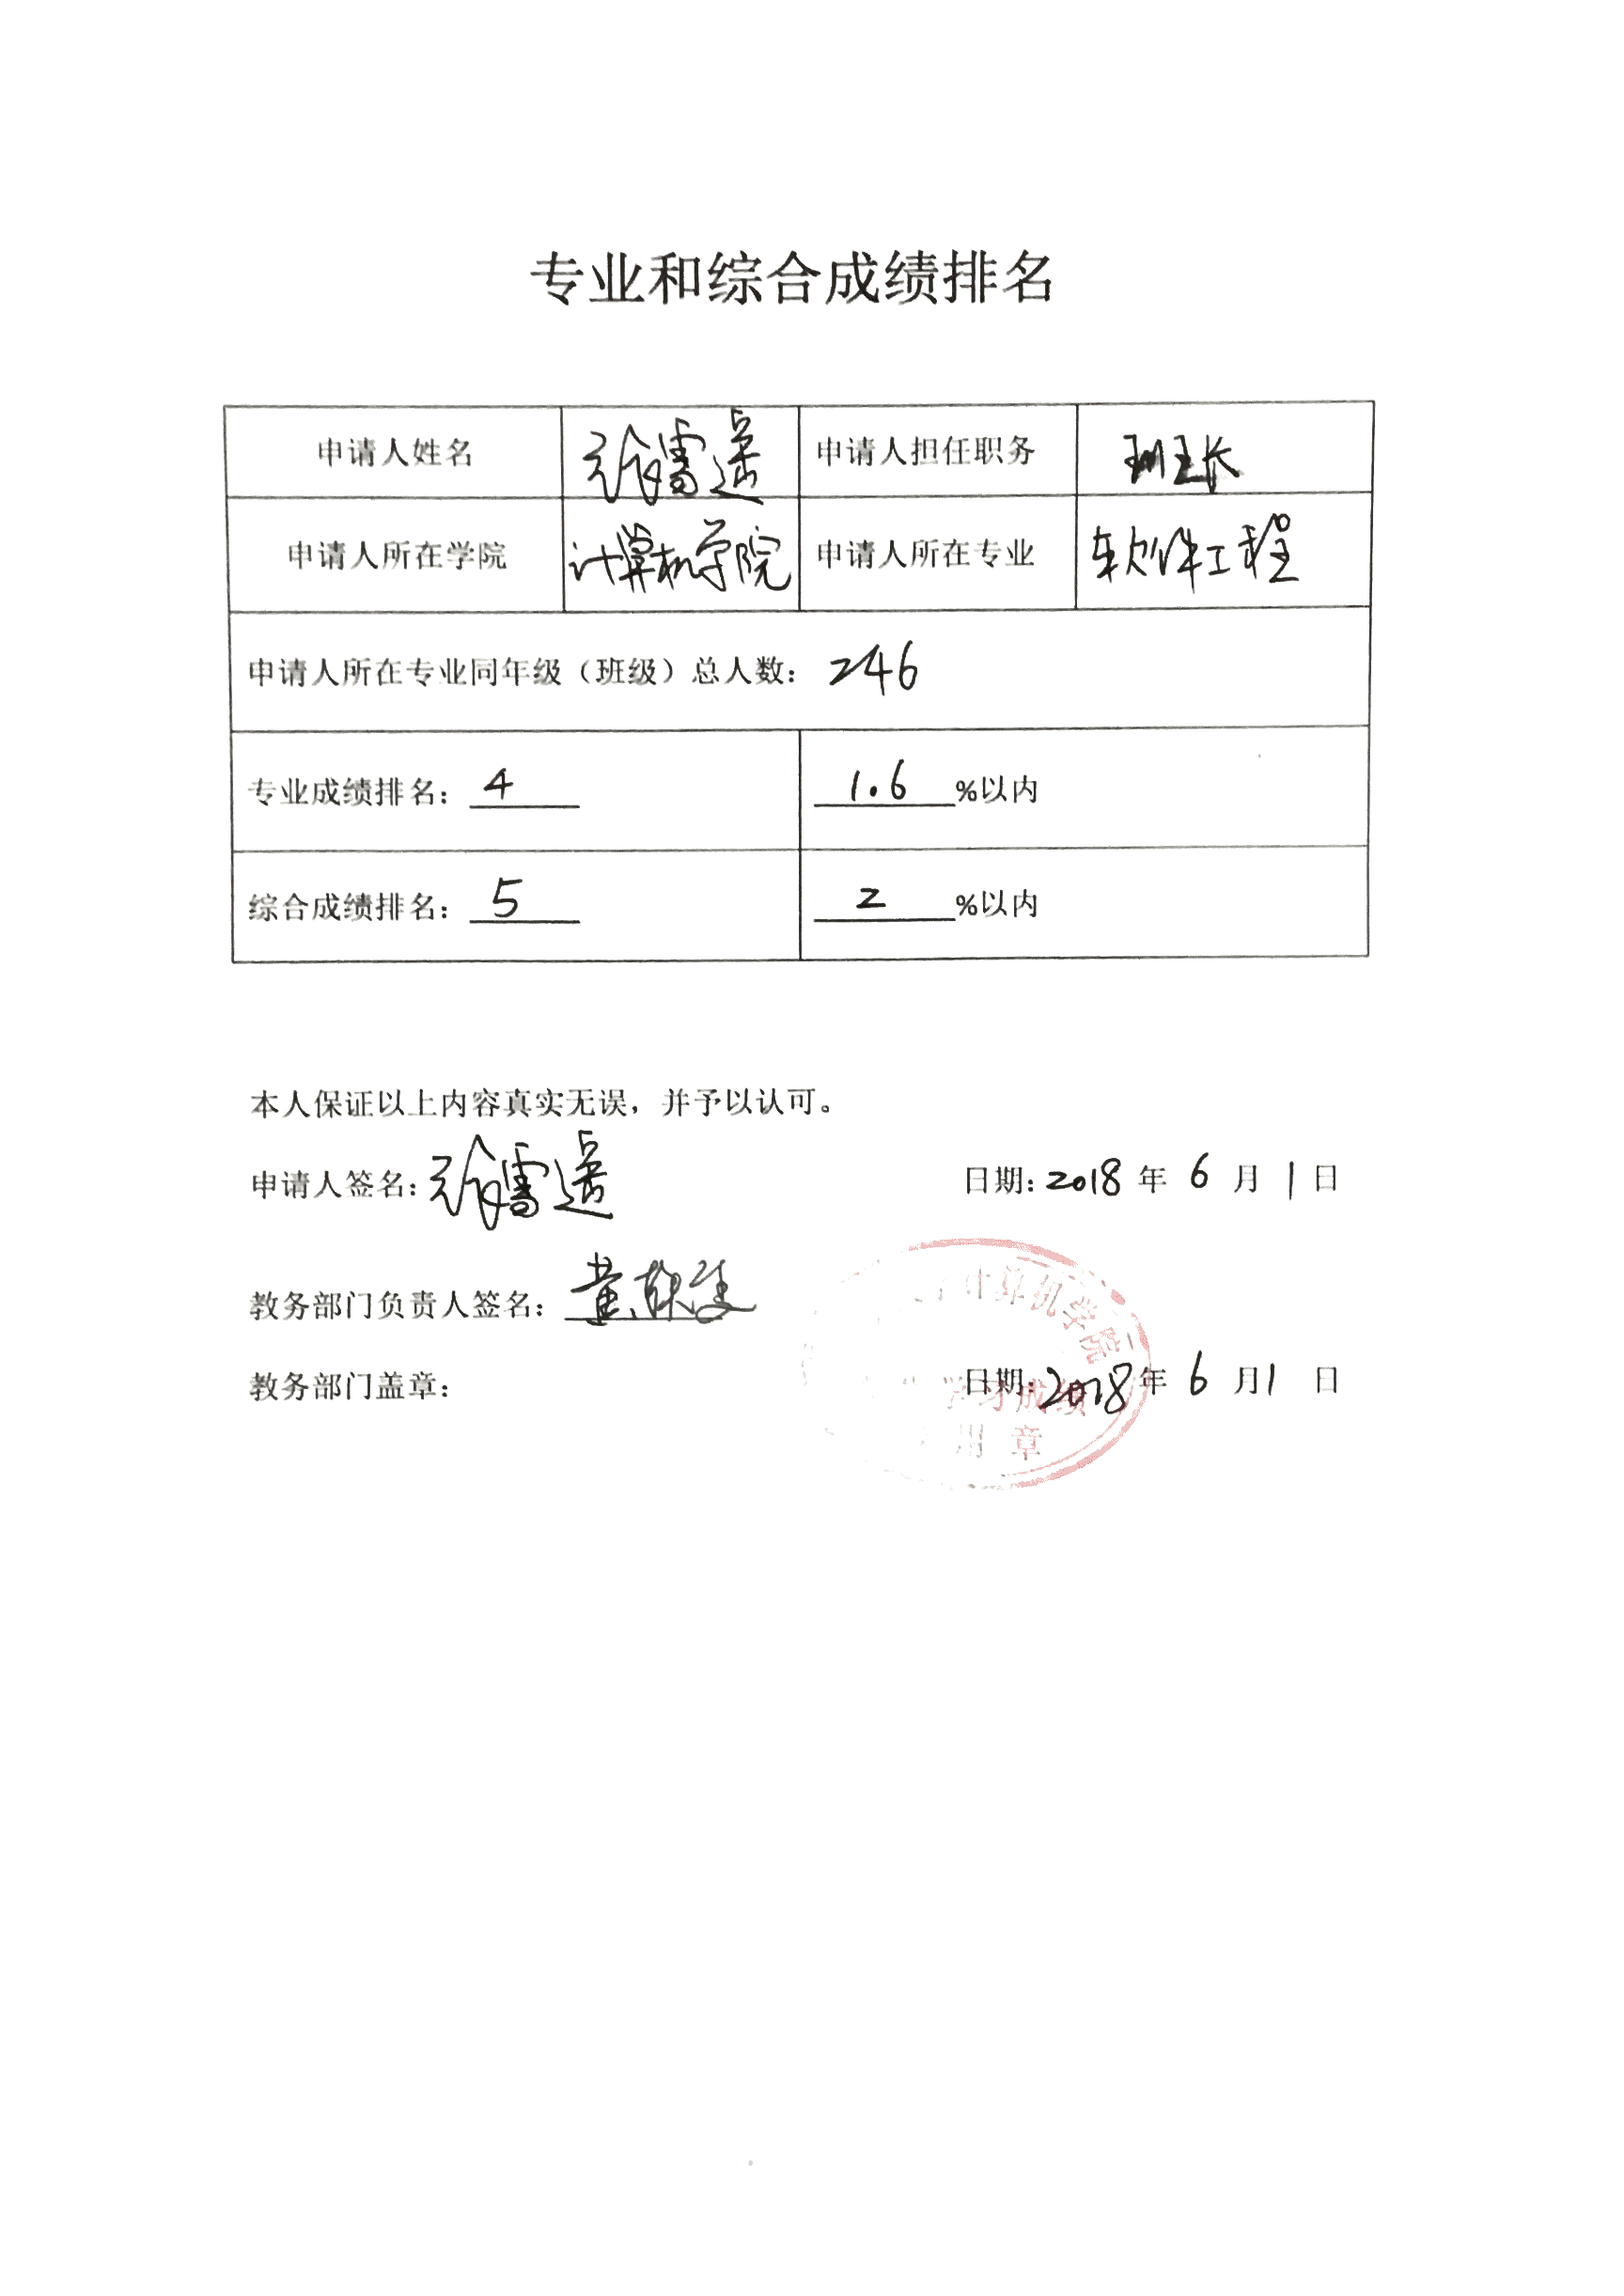 专业和综合成绩排名
申请人姓名 申请人担任职务 班长
申请人所在学院 计算机学院 申请人所在专业 软件工程
申请人所在专业同年级（班级）总人数： 246
专业成绩排名： 4 1.6 %以内
综合成绩排名： 5 2 %以内
本人保证以上内容真实无误，并予以认可。
申请人签名： 日期：2018 年 6 月 1 日
教务部门负责人签名：
计算机学院
教务部门盖章： 日期：2018 年 6 月 1 日
学习成绩
用章